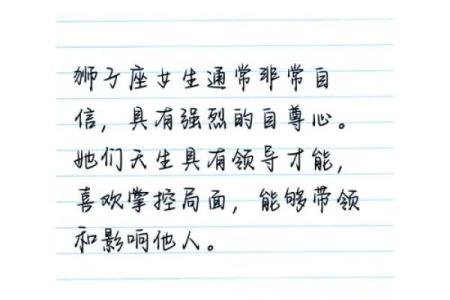 狮子座女生通常非常自
信，具有强烈的自尊心。
她们天生具有领导才能，
喜欢掌控局面，能够带领
和影响他人。